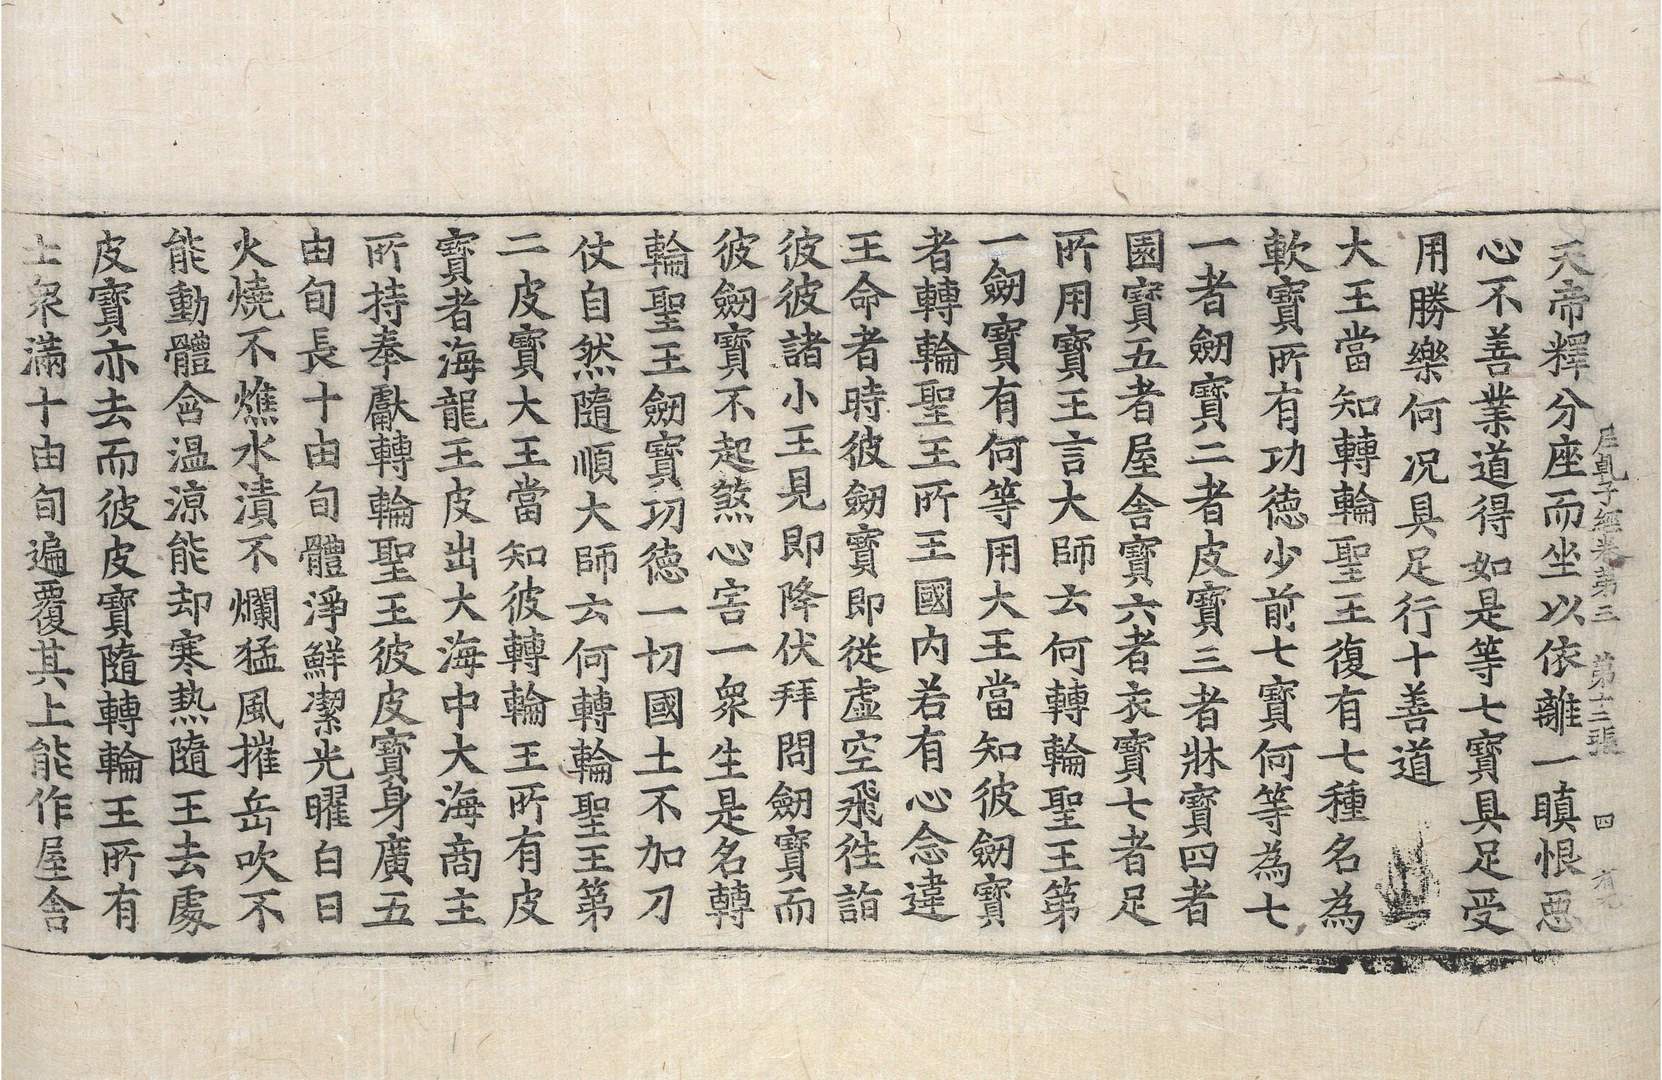 尼乹子經卷第三　第十二張　四　有
天帝釋分座而坐以依離一瞋恨惡
心不善業道得如是等七寶具足受
用勝樂何況具足行十善道
大王當知轉輪聖王復有七種名為
軟寶所有功德少前七寶何等為七
一者劒寶二者皮寶三者牀寶四者
園寶五者屋舍寶六者衣寶七者足
所用寶王言大師云何轉輪聖王第
一劒寶有何等用大王當知彼劒寶
者轉輪聖王所王國內若有心念違
王命者時彼劒寶即從虛空飛往詣
彼彼諸小王見即降伏拜問劒寶而
彼劒寶不起煞心害一衆生是名轉
輪聖王劒寶功德一切國土不加刀
仗自然隨順大師云何轉輪聖王第
二皮寶大王當知彼轉輪王所有皮
寶者海龍王皮出大海中大海商主
所持奉獻轉輪聖王彼皮寶身廣五
由旬長十由旬體淨鮮潔光曜白日
火燒不燋水漬不爛猛風摧岳吹不
能動體含温涼能却寒熱隨王去處
皮寶亦去而彼皮寶隨轉輪王所有
士衆滿十由旬遍覆其上能作屋舍